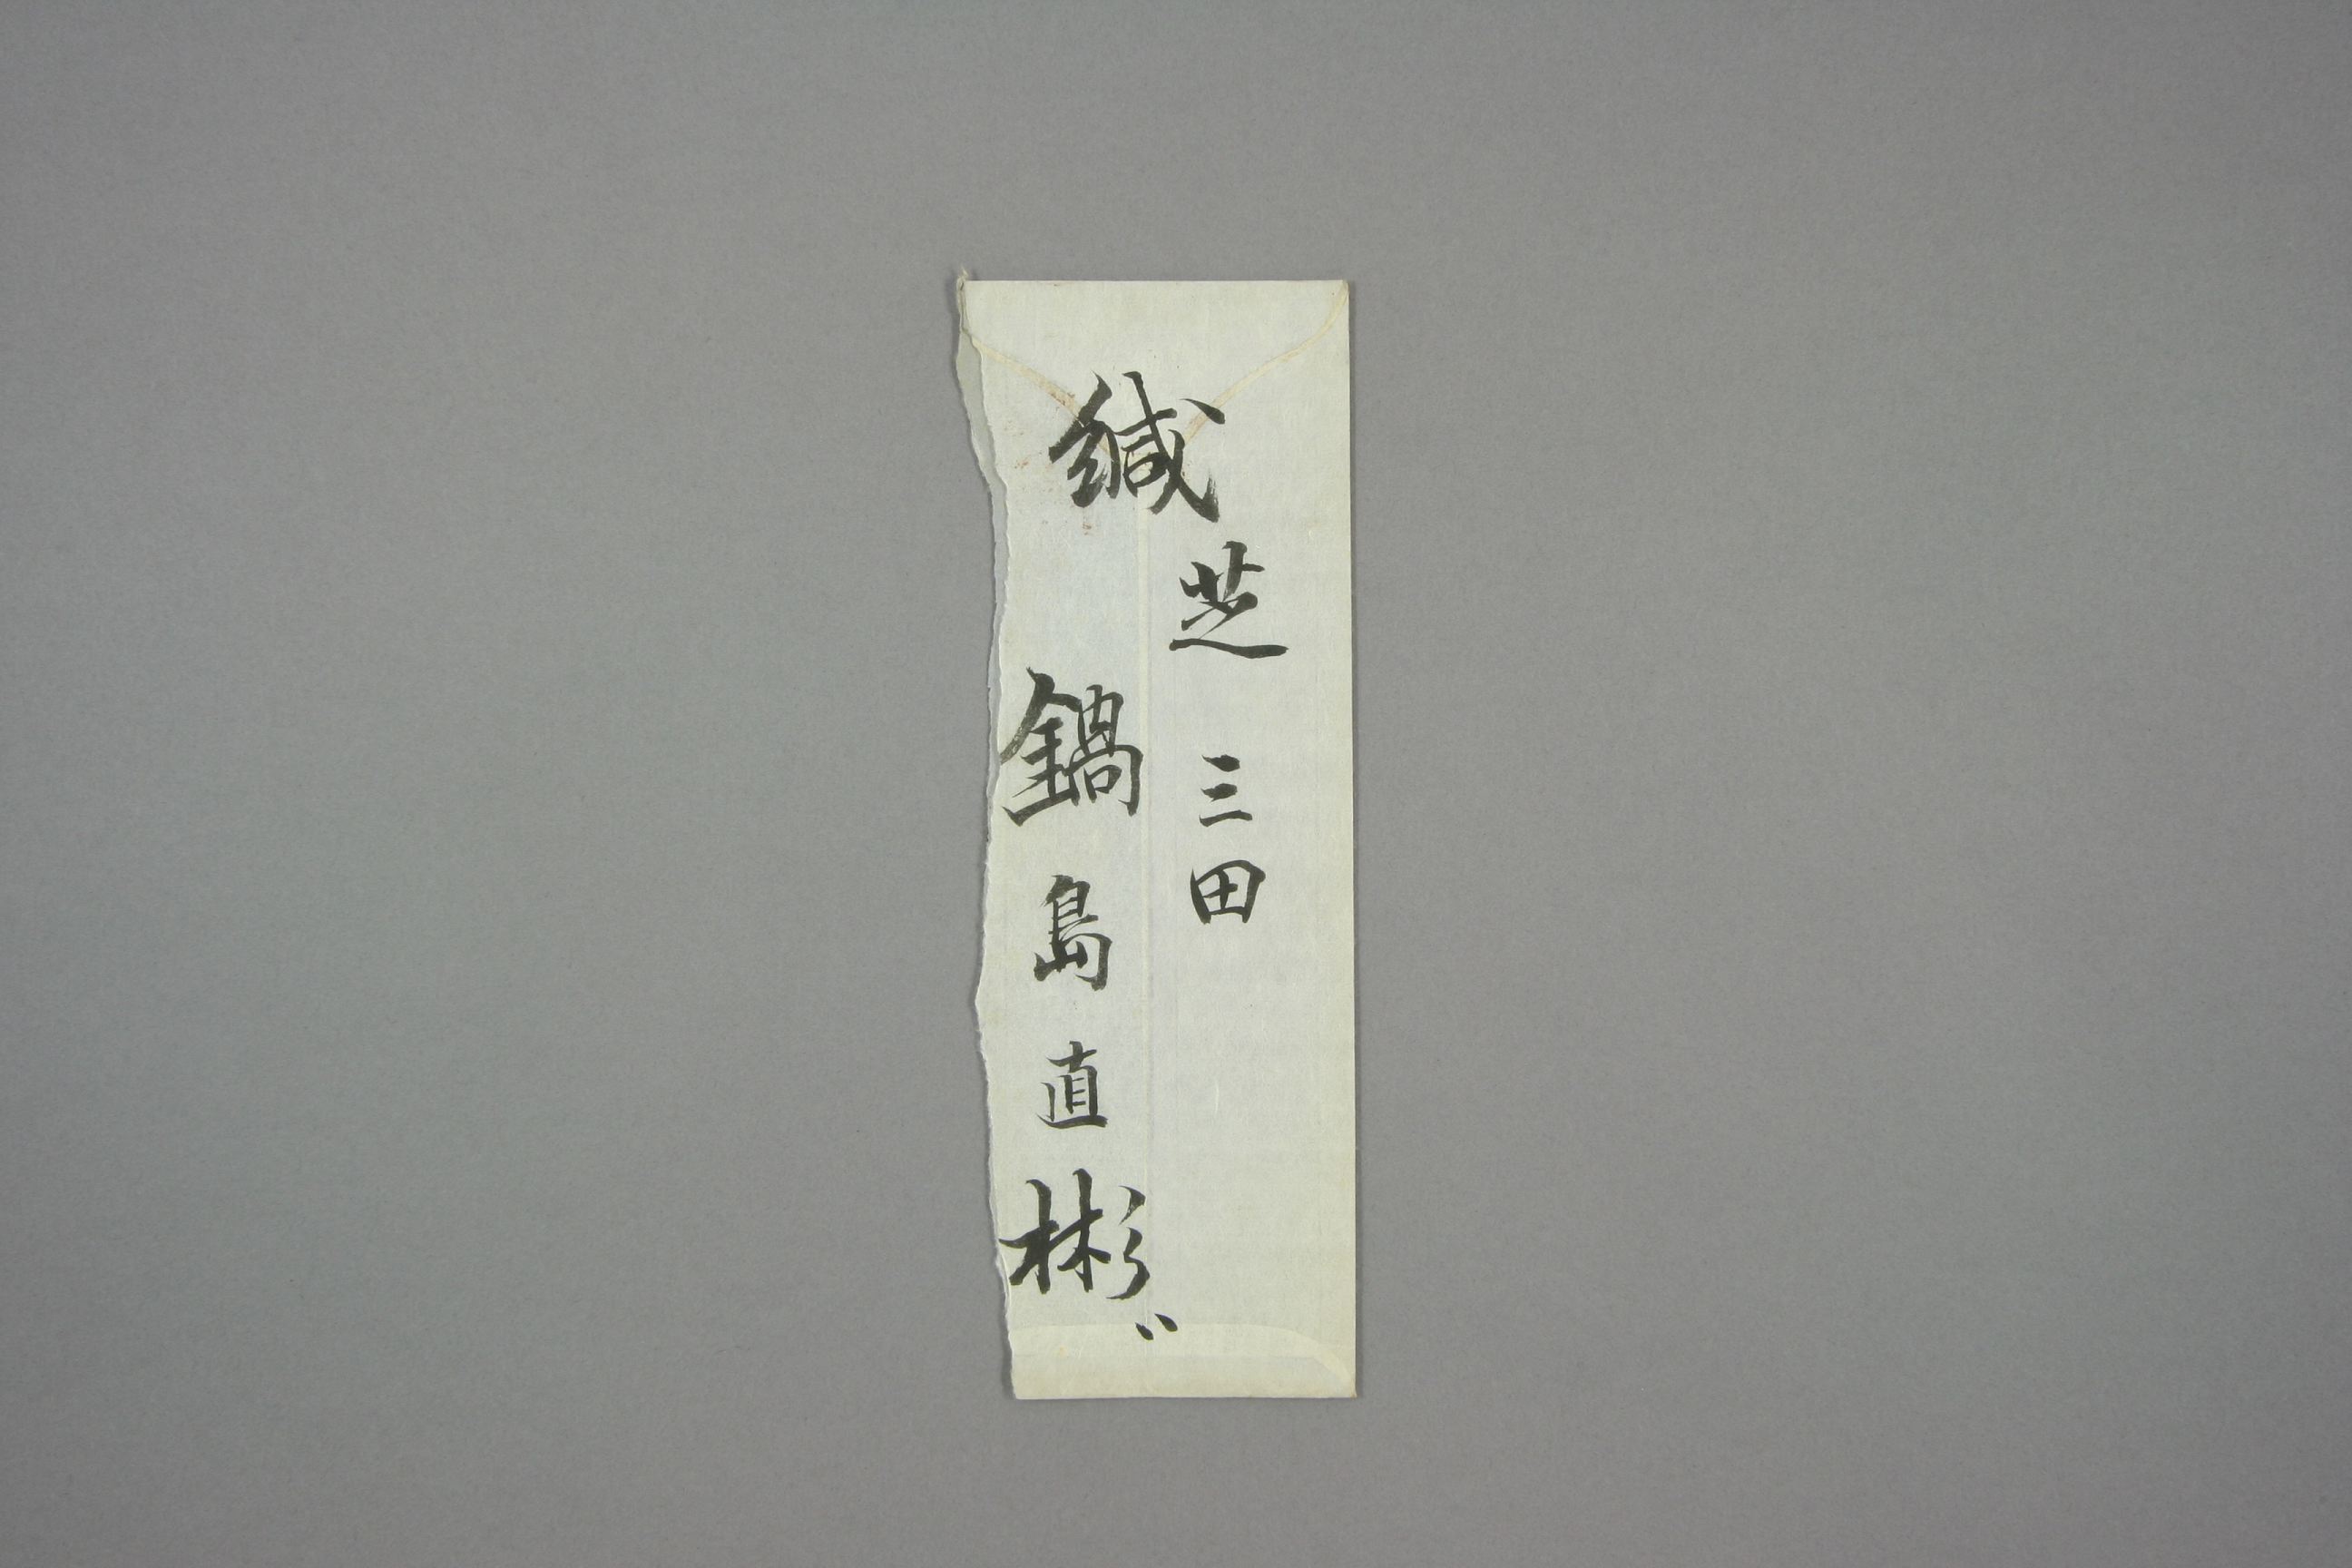 緘
芝三田
鍋島直彬